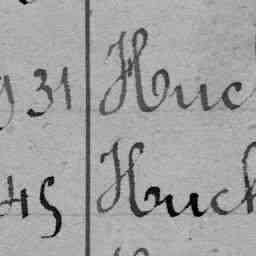 31 Huc
45 Huck